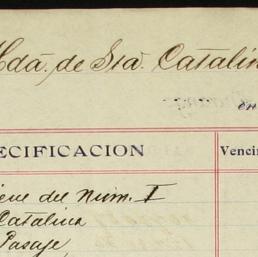 Hda. de Sta. Catalin
en
ECIFICACION
Venci
iene del Núm. I
Catalina
Pasaje,